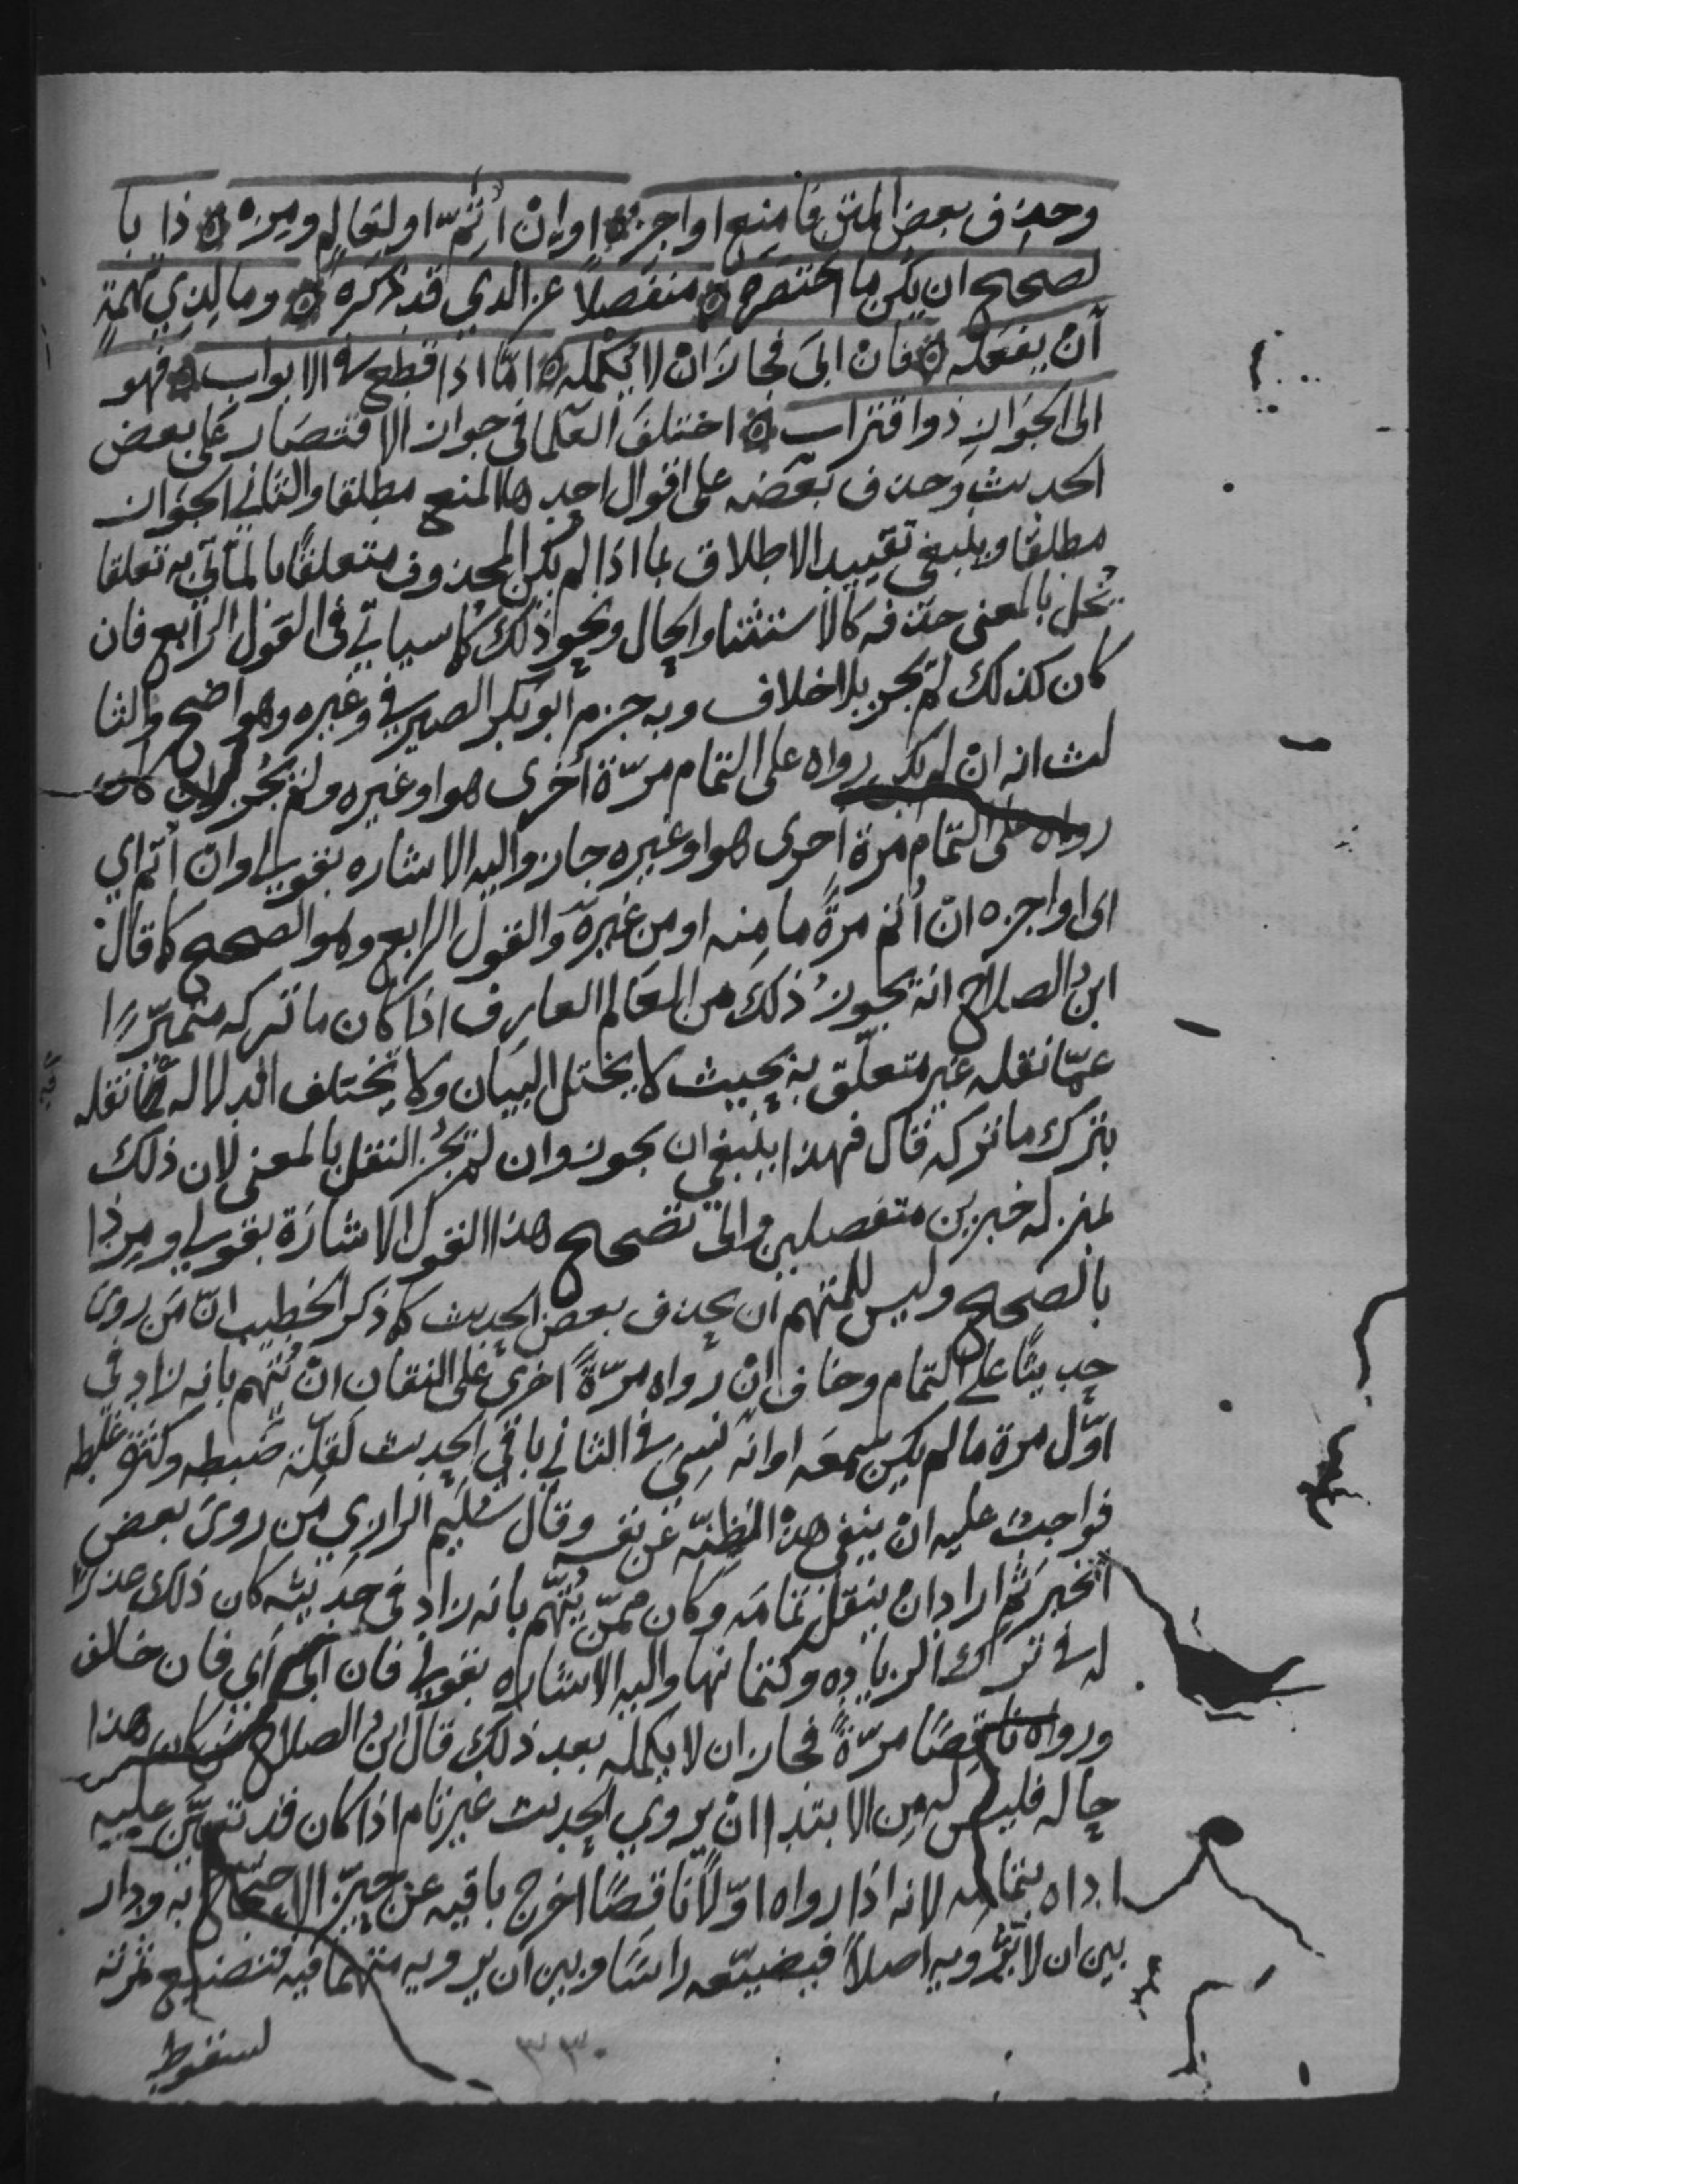 وحذف بعض المتن فامنع او اجز ۞ او ان اُتِمّ او لعالم ومِز ۞ ذا با
لصحيح ان يكن ما اختصره ۞ منفصلاً عن الذي قد ذكره ۞ وما لِذِي تُهمةٍ
أن يفعله ۞ فان ابى فجاز ان لا يكمله ۞ امّا اذا قطع في الابواب ۞ فهو
الى الجواز ذو اقتراب ۞ اختلف العلما في جواز الاقتصار على بعض
الحديث وحذف بعضه على اقوال احدها المنع مطلقا والثاني الجواز
مطلقا وينبغي تقييد الاطلاق بما اذا لم يكن المحذوف متعلقًا بالماتي به تعلقا
يُخل بالمعنى حذفه كالاستثنا والحال ونحو ذلك كما سياتي في القول الرابع فان
كان كذلك لم يجز بلا خلاف وبه جزم ابو بكر الصيرفي وغيره وهو واضح والثا
لث انه ان لم يكن رواه على التمام مرّة أخرى هو او غيره ولم يجز وان كان
رواه على التمام مرة اخرى هو او غيره جاز واليه الاشاره بقولي او ان اُتم اي
اى او اجزه ان أُتم مرةً ما منه او من غيره والقول الرابع وهو الصحيح كما قال
ابن الصلاح انه يجوز ذلك من العالم العارف اذا كان ما تركه متميّزًا
عمّا نقله غير متعلّق به بحيث لا يختل البيان ولا تختلف الدلاله فيما نقله
بترك ما تركه قال فهذا ينبغي ان يجوز وان لم يجز النقل بالمعنى لان ذلك
بمنزله خبرين منفصلين والى تصحيح هذا القول الاشارة بقولي ومِز ذا
بالصحيح وليس للمتهم ان يحذف بعض الحديث كما ذكر الخطيب انّ مَن روى
حديثًا على التمام وخاف ان رواه مرّةً اخرى على النقصان ان يُتهم بانه زاد في
اوّل مرة ما لم يكن سمعه او انه نسي في الثاني باقي الحديث لقلّة ضبطه وكثرة غلطه
فواجب عليه ان ينفي هذه الظِنّه عن نفسه وقال سُليم الرازي مَن روى بعض
الخبر ثم اراد ان ينقل تمامه وكان ممّن يُتّهم بانه زاد في حديثه كان ذلك عذرًا
له في ترك الزياده وكتمانها واليه الاشاره بقولي فان ابى اي فان خالف
ورواه ناقصًا مرّةً فجاز ان لا يكمله بعد ذلك قال ابن الصلاح من كان هذا
حاله فليس له من الابتدا ان يروي الحديث غير تام اذا كان قد تعيّن عليه
اداه بتمامه لانه اذا رواه اوّلًا ناقصًا اخرج باقيه عن حيّز الاحتجاج به ودار
بين ان لا يرويه اصلاً فيضيّعه راسًا وبين ان يرويه متهمًا فيه فتضيع ثمرته
لسقوط
٣٣٠